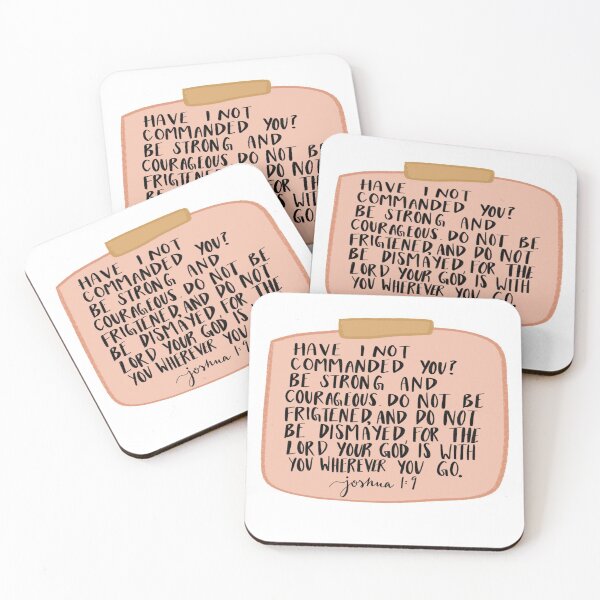 HAVE I NOT
COMMANDED YOU?
BE STRONG AND
COURAGEOUS. DO NOT BE
FRIGTENED, AND DO NOT
FOR THE
IS WITH
GO.
HAVE I NOT
COMMANDED YOU?
BE STRONG AND
COURAGEOUS. DO NOT BE
FRIGTENED, AND DO NOT
BE DISMAYED, FOR THE
LORD YOUR GOD IS WITH
YOU WHEREVER YOU GO.
HAVE I NOT
COMMANDED YOU?
BE STRONG AND
COURAGEOUS. DO NOT BE
FRIGTENED, AND DO NOT
BE DISMAYED, FOR THE
LORD YOUR GOD IS
YOU WHEREVER YOU
joshua 1:9
HAVE I NOT
COMMANDED YOU?
BE STRONG AND
COURAGEOUS. DO NOT BE
FRIGTENED, AND DO NOT
BE DISMAYED, FOR THE
LORD YOUR GOD IS WITH
YOU WHEREVER YOU GO.
joshua 1:9